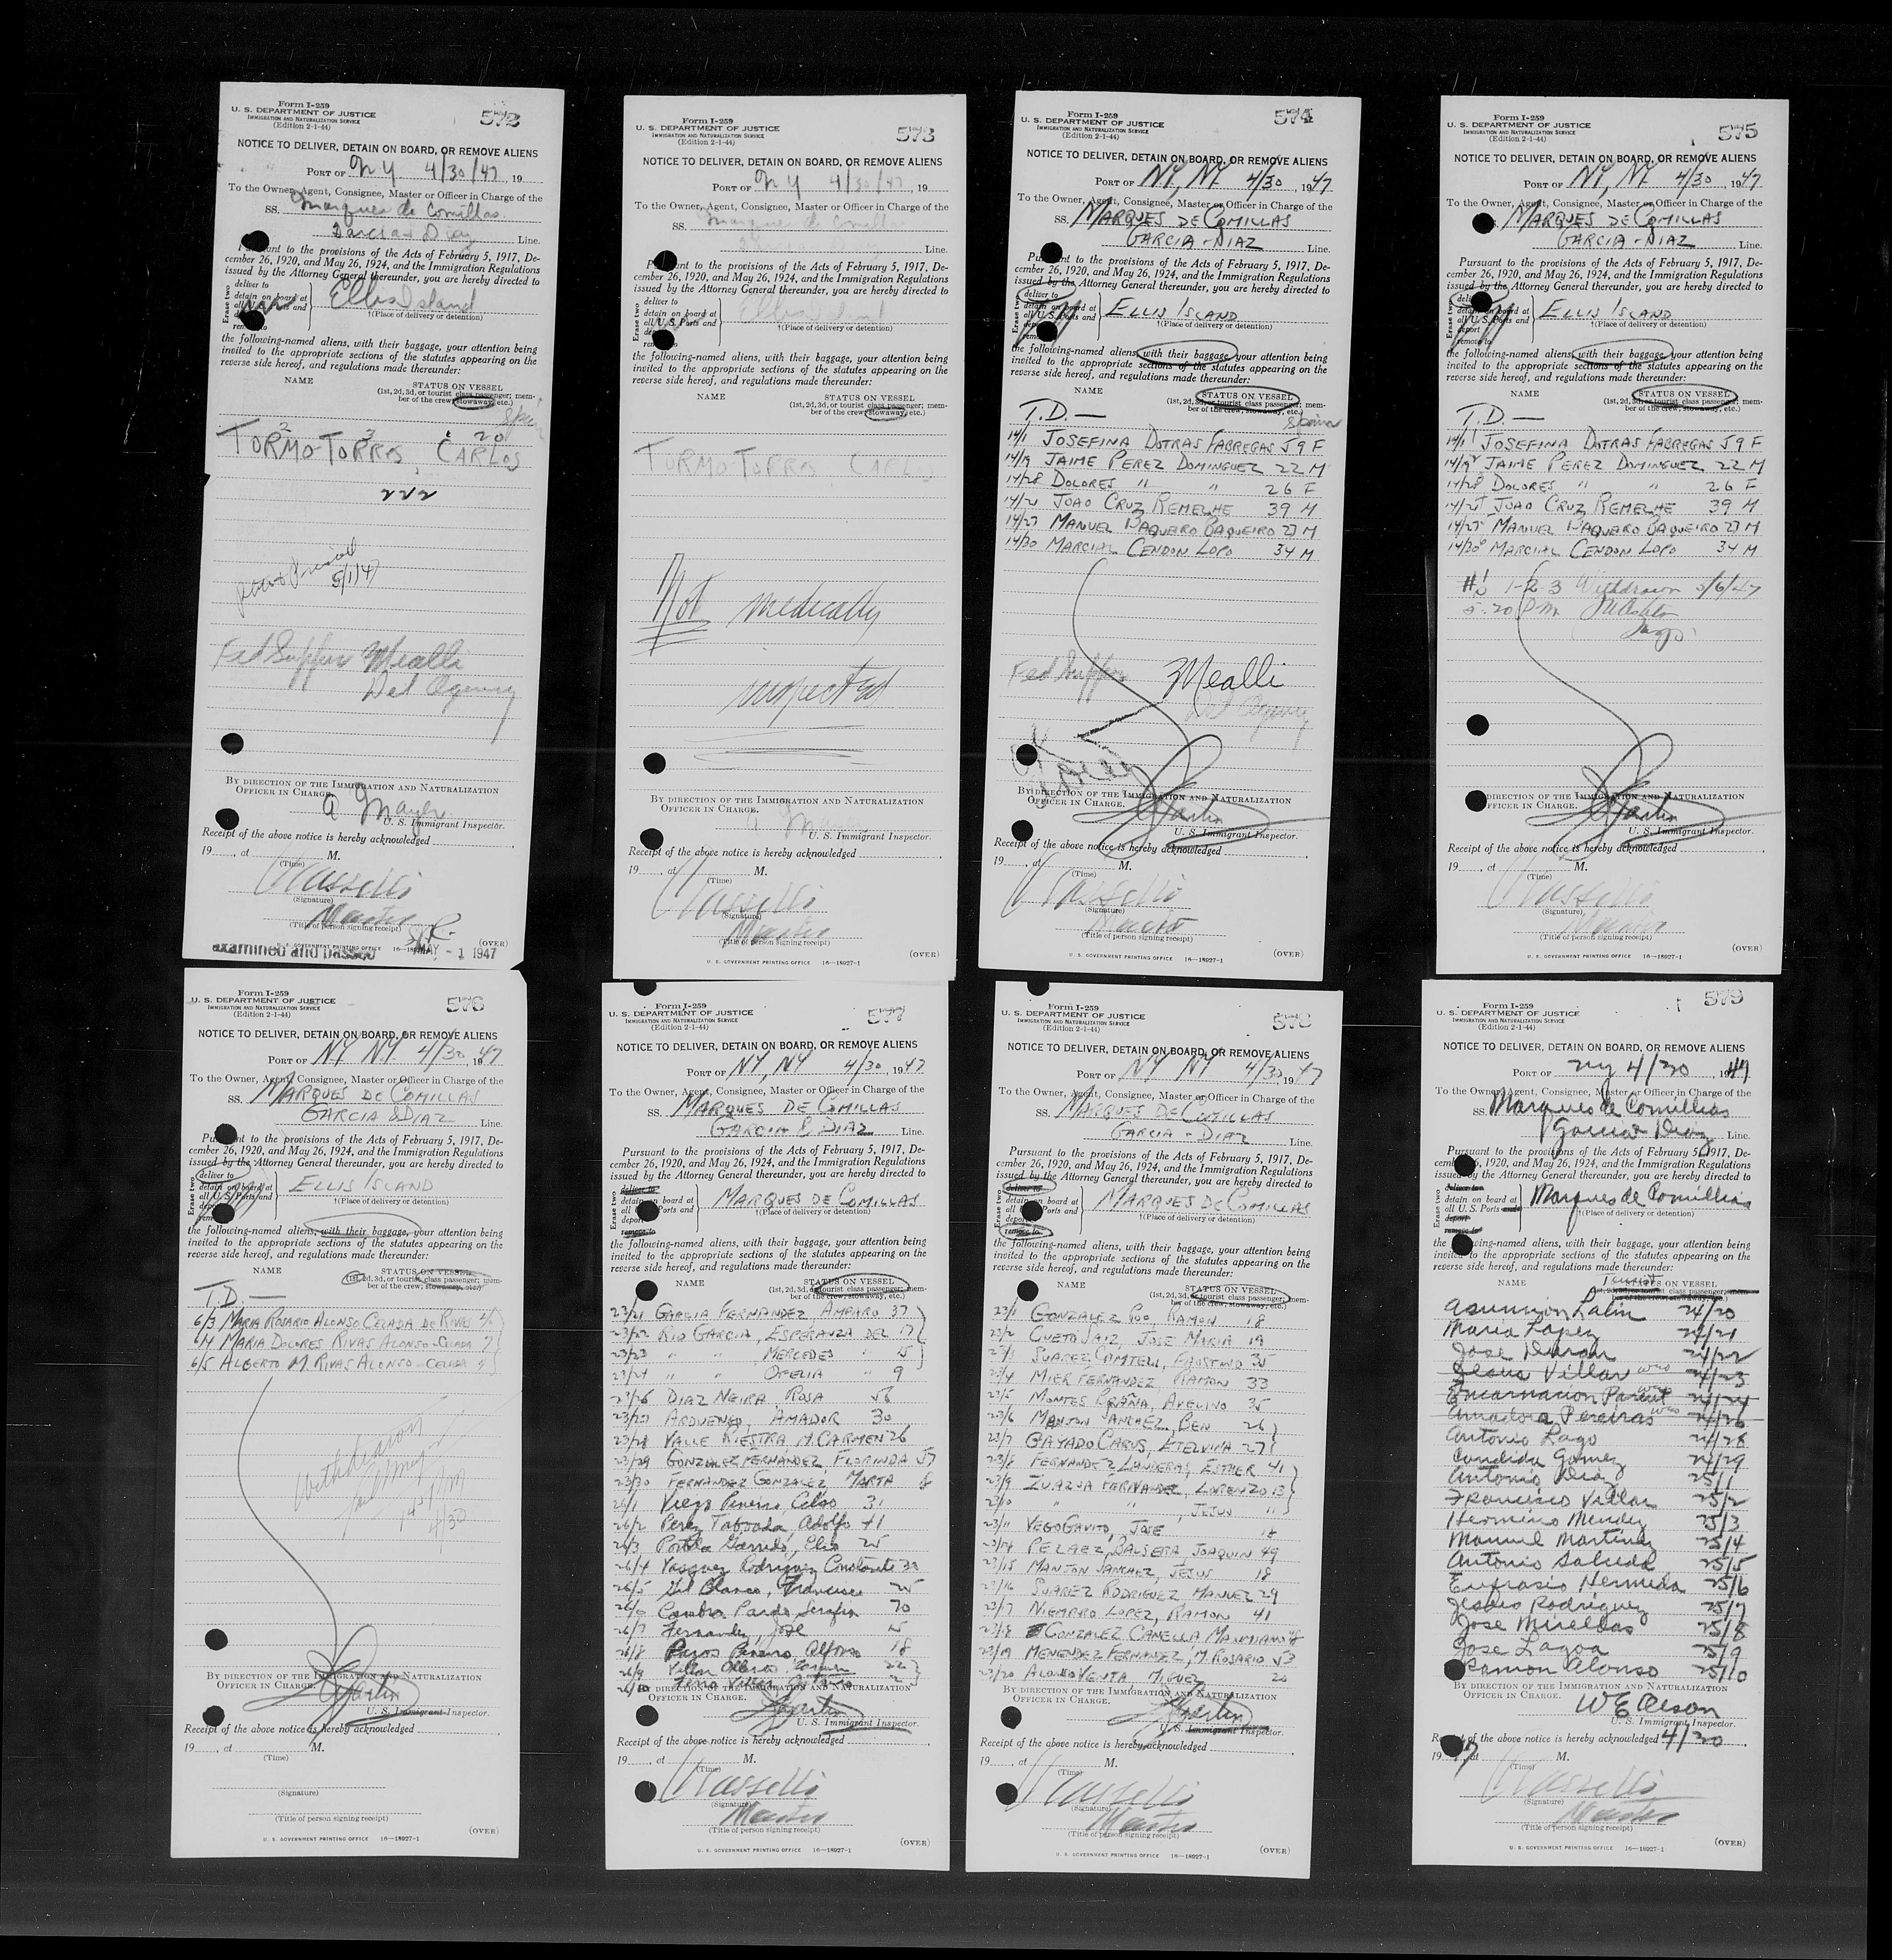 Form I-259
U. S. DEPARTMENT OF JUSTICE
IMMIGRATION AND NATURALIZATION SERVICE
(Edition 2-1-44)
572
NOTICE TO DELIVER, DETAIN ON BOARD, OR REMOVE ALIENS
PORT OF N Y 4/30/47, 19
To the Owner, Agent, Consignee, Master or Officer in Charge of the
SS. Marques de Comillas
Garcia & Diaz Line.
Pursuant to the provisions of the Acts of February 5, 1917, De-
cember 26, 1920, and May 26, 1924, and the Immigration Regulations
issued by the Attorney General thereunder, you are hereby directed to
Erase two
deliver to
detain on board at
all U. S. Ports and
remove to
Ellis Island
†(Place of delivery or detention)
the following-named aliens, with their baggage, your attention being
invited to the appropriate sections of the statutes appearing on the
reverse side hereof, and regulations made thereunder:
NAME STATUS ON VESSEL
(1st, 2d, 3d, or tourist class passenger; mem-
ber of the crew; stowaway, etc.)
Spain
2 3 20
TORMO-TORRES, CARLOS
5/1/47
Mealli
Det Agency
BY DIRECTION OF THE IMMIGRATION AND NATURALIZATION
OFFICER IN CHARGE.
A Mayer
U. S. Immigrant Inspector.
Receipt of the above notice is hereby acknowledged
19, at M.
(Time)
(Signature)
Master
(Title of person signing receipt)
U. S. GOVERNMENT PRINTING OFFICE 16-18927-1 (OVER)
examined and passed MAY - 1 1947
Form I-259
U. S. DEPARTMENT OF JUSTICE
IMMIGRATION AND NATURALIZATION SERVICE
(Edition 2-1-44)
573
NOTICE TO DELIVER, DETAIN ON BOARD, OR REMOVE ALIENS
PORT OF N Y 4/30/47, 19
To the Owner, Agent, Consignee, Master or Officer in Charge of the
SS. Marques de Comillas
Line.
Pursuant to the provisions of the Acts of February 5, 1917, De-
cember 26, 1920, and May 26, 1924, and the Immigration Regulations
issued by the Attorney General thereunder, you are hereby directed to
Erase two
deliver to
detain on board at
all U. S. Ports and
Ellis Island
†(Place of delivery or detention)
the following-named aliens, with their baggage, your attention being
invited to the appropriate sections of the statutes appearing on the
reverse side hereof, and regulations made thereunder:
NAME STATUS ON VESSEL
(1st, 2d, 3d, or tourist class passenger; mem-
ber of the crew; stowaway, etc.)
TORMO-TORRES CARLOS
Not medically
inspected
BY DIRECTION OF THE IMMIGRATION AND NATURALIZATION
OFFICER IN CHARGE.
U. S. Immigrant Inspector.
Receipt of the above notice is hereby acknowledged
19, at M.
(Time)
(Signature)
Master
(Title of person signing receipt)
U. S. GOVERNMENT PRINTING OFFICE 16-18927-1 (OVER)
Form I-259
U. S. DEPARTMENT OF JUSTICE
IMMIGRATION AND NATURALIZATION SERVICE
(Edition 2-1-44)
574
NOTICE TO DELIVER, DETAIN ON BOARD, OR REMOVE ALIENS
PORT OF NY, NY 4/30, 1947
To the Owner, Agent, Consignee, Master or Officer in Charge of the
SS. MARQUES DE COMILLAS
GARCIA - DIAZ Line.
Pursuant to the provisions of the Acts of February 5, 1917, De-
cember 26, 1920, and May 26, 1924, and the Immigration Regulations
issued by the Attorney General thereunder, you are hereby directed to
Erase two
deliver to
detain on board at
all U. S. Ports and
ELLIS ISLAND
†(Place of delivery or detention)
the following-named aliens, with their baggage, your attention being
invited to the appropriate sections of the statutes appearing on the
reverse side hereof, and regulations made thereunder:
NAME STATUS ON VESSEL
(1st, 2d, 3d, or tourist class passenger; mem-
ber of the crew; stowaway, etc.)
T.D. — Spain
14/1 JOSEFINA DOTRAS FABREGAS 59 F
14/19 JAIME PEREZ DOMINGUEZ 22 M
14/28 DOLORES " " 26 F
14/21 JOAO CRUZ REMELHE 39 M
14/27 MANUEL BAQUERO BAQUEIRO 27 M
14/30 MARCIAL CENDON LOPO 34 M
Mealli
Det Agency
BY DIRECTION OF THE IMMIGRATION AND NATURALIZATION
OFFICER IN CHARGE.
Martin
U. S. Immigrant Inspector.
Receipt of the above notice is hereby acknowledged
19, at M.
(Time)
(Signature)
Master
(Title of person signing receipt)
U. S. GOVERNMENT PRINTING OFFICE 16-18927-1 (OVER)
Form I-259
U. S. DEPARTMENT OF JUSTICE
IMMIGRATION AND NATURALIZATION SERVICE
(Edition 2-1-44)
575
NOTICE TO DELIVER, DETAIN ON BOARD, OR REMOVE ALIENS
PORT OF NY, NY 4/30, 1947
To the Owner, Agent, Consignee, Master or Officer in Charge of the
SS. MARQUES DE COMILLAS
GARCIA - DIAZ Line.
Pursuant to the provisions of the Acts of February 5, 1917, De-
cember 26, 1920, and May 26, 1924, and the Immigration Regulations
issued by the Attorney General thereunder, you are hereby directed to
Erase two
detain on board at
all U. S. Ports and
deport
remove to
ELLIS ISLAND
†(Place of delivery or detention)
the following-named aliens, with their baggage, your attention being
invited to the appropriate sections of the statutes appearing on the
reverse side hereof, and regulations made thereunder:
NAME STATUS ON VESSEL
(1st, 2d, 3d, or tourist class passenger; mem-
ber of the crew; stowaway, etc.)
T.D. —
14/1 JOSEFINA DOTRAS FABREGAS 59 F
14/19 JAIME PEREZ DOMINGUEZ 22 M
14/28 DOLORES " " 26 F
14/21 JOAO CRUZ REMELHE 39 M
14/27 MANUEL BAQUERO BAQUEIRO 27 M
14/30 MARCIAL CENDON LOPO 34 M
#1 1-2-3 Withdrawn 5/6/47
5:20 P.M.
BY DIRECTION OF THE IMMIGRATION AND NATURALIZATION
OFFICER IN CHARGE.
Martin
U. S. Immigrant Inspector.
Receipt of the above notice is hereby acknowledged
19, at M.
(Time)
(Signature)
Master
(Title of person signing receipt)
U. S. GOVERNMENT PRINTING OFFICE 16-18927-1 (OVER)
Form I-259
U. S. DEPARTMENT OF JUSTICE
IMMIGRATION AND NATURALIZATION SERVICE
(Edition 2-1-44)
576
NOTICE TO DELIVER, DETAIN ON BOARD, OR REMOVE ALIENS
PORT OF NY NY. 4/30, 1947
To the Owner, Agent, Consignee, Master or Officer in Charge of the
SS. MARQUES DE COMILLAS
GARCIA & DIAZ Line.
Pursuant to the provisions of the Acts of February 5, 1917, De-
cember 26, 1920, and May 26, 1924, and the Immigration Regulations
issued by the Attorney General thereunder, you are hereby directed to
Erase two
deliver to
detain on board at
all U. S. Ports and
ELLIS ISLAND
†(Place of delivery or detention)
the following-named aliens, with their baggage, your attention being
invited to the appropriate sections of the statutes appearing on the
reverse side hereof, and regulations made thereunder:
NAME STATUS ON VESSEL
(1st, 2d, 3d, or tourist class passenger; mem-
ber of the crew; stowaway, etc.)
T.D. —
6/3 MARIA ROSARIO ALONSO CELADA DE RIVAS
6/4 MARIA DOLORES RIVAS ALONSO-CELADA 7
6/5 ALBERTO M. RIVAS ALONSO-CELADA 4
4/30
BY DIRECTION OF THE IMMIGRATION AND NATURALIZATION
OFFICER IN CHARGE.
Martin
U. S. Immigrant Inspector.
Receipt of the above notice is hereby acknowledged
19, at M.
(Time)
(Signature)
(Title of person signing receipt)
U. S. GOVERNMENT PRINTING OFFICE 16-18927-1 (OVER)
Form I-259
U. S. DEPARTMENT OF JUSTICE
IMMIGRATION AND NATURALIZATION SERVICE
(Edition 2-1-44)
577
NOTICE TO DELIVER, DETAIN ON BOARD, OR REMOVE ALIENS
PORT OF NY, NY 4/30, 1947
To the Owner, Agent, Consignee, Master or Officer in Charge of the
SS. MARQUES DE COMILLAS
GARCIA & DIAZ Line.
Pursuant to the provisions of the Acts of February 5, 1917, De-
cember 26, 1920, and May 26, 1924, and the Immigration Regulations
issued by the Attorney General thereunder, you are hereby directed to
Erase two
deliver to
detain on board at
all U. S. Ports and
deport
remove to
MARQUES DE COMILLAS
†(Place of delivery or detention)
the following-named aliens, with their baggage, your attention being
invited to the appropriate sections of the statutes appearing on the
reverse side hereof, and regulations made thereunder:
NAME STATUS ON VESSEL
(1st, 2d, 3d, or tourist class passenger; mem-
ber of the crew; stowaway, etc.)
23/21 GARCIA FERNANDEZ, AMPARO 37
23/22 RIO GARCIA, ESPERANZA DEL 17
23/23 " " MERCEDES " 15
23/24 " " OFELIA " 9
23/26 DIAZ NEIRA, ROSA 56
23/27 ARDUENGO, AMADOR 30
23/28 VALLE RIESTRA, M. CARMEN 26
23/29 GONZALEZ FERNANDEZ, FLORINDA 57
23/30 FERNANDEZ GONZALEZ, MARTA 8
26/1 Viego Pineiro, Celso 31
26/2 Perez Taboada, Adolfo 41
26/3 Portela Garrido, Elio 25
26/4 Vasquez Rodriguez Constante 32
26/5 Gil Blanco, Francisco 25
26/6 Cambra Pardo, Serafin 70
26/7 Fernandez, Jose 15
26/8 Pazos Pineiro Alfonso 18
26/9 Villar Carmen 22
26/10
BY DIRECTION OF THE IMMIGRATION AND NATURALIZATION
OFFICER IN CHARGE.
Martin
U. S. Immigrant Inspector.
Receipt of the above notice is hereby acknowledged
19, at M.
(Time)
(Signature)
Master
(Title of person signing receipt)
U. S. GOVERNMENT PRINTING OFFICE 16-18927-1 (OVER)
Form I-259
U. S. DEPARTMENT OF JUSTICE
IMMIGRATION AND NATURALIZATION SERVICE
(Edition 2-1-44)
578
NOTICE TO DELIVER, DETAIN ON BOARD, OR REMOVE ALIENS
PORT OF NY NY 4/30, 1947
To the Owner, Agent, Consignee, Master or Officer in Charge of the
SS. MARQUES DE COMILLAS
GARCIA - DIAZ Line.
Pursuant to the provisions of the Acts of February 5, 1917, De-
cember 26, 1920, and May 26, 1924, and the Immigration Regulations
issued by the Attorney General thereunder, you are hereby directed to
Erase two
deliver to
detain on board at
all U. S. Ports and
deport
remove to
MARQUES DE COMILLAS
†(Place of delivery or detention)
the following-named aliens, with their baggage, your attention being
invited to the appropriate sections of the statutes appearing on the
reverse side hereof, and regulations made thereunder:
NAME STATUS ON VESSEL
(1st, 2d, 3d, or tourist class passenger; mem-
ber of the crew; stowaway, etc.)
23/1 GONZALEZ POO, RAMON 18
23/2 CUETO SAIZ, JOSE MARIA 19
23/3 SUAREZ CAMTELI, FAUSTINO 35
23/4 MIER FERNANDEZ, RAMON 33
23/5 MONTES BRAÑA, AVELINO 35
23/6 MANJON SANCHEZ, BEN 26
23/7 GAYADO CARUS, ETELVINA 27
23/8 FERNANDEZ LANDERAS, ESTHER 41
23/9 ZUAZUA FERNANDEZ, LORENZO 13
23/10 " " , JESUS "
23/11 VEGO GAVITO, JOSE 18
23/14 PELAEZ BALSERA JOAQUIN 49
23/15 MANJON SANCHEZ, JESUS 18
23/16 SUAREZ RODRIGUEZ, MANUEL 29
23/17 NIEMBRO LOPEZ, RAMON 41
23/18 GONZALEZ CANELLA, MAXIMIANO
23/19 MENENDEZ FERNANDEZ, M. ROSARIO 53
23/20 ALONSO VENTA, MIGUEL 20
BY DIRECTION OF THE IMMIGRATION AND NATURALIZATION
OFFICER IN CHARGE.
Martin
U. S. Immigrant Inspector.
Receipt of the above notice is hereby acknowledged
19, at M.
(Time)
(Signature)
Master
(Title of person signing receipt)
U. S. GOVERNMENT PRINTING OFFICE 16-18927-1 (OVER)
Form I-259
U. S. DEPARTMENT OF JUSTICE
IMMIGRATION AND NATURALIZATION SERVICE
(Edition 2-1-44)
579
NOTICE TO DELIVER, DETAIN ON BOARD, OR REMOVE ALIENS
PORT OF NY 4/30, 1947
To the Owner, Agent, Consignee, Master or Officer in Charge of the
SS. Marques de Comillas
Garcia & Diaz Line.
Pursuant to the provisions of the Acts of February 5, 1917, De-
cember 26, 1920, and May 26, 1924, and the Immigration Regulations
issued by the Attorney General thereunder, you are hereby directed to
Erase two
deliver to
detain on board at
all U. S. Ports and
deport
remove to
Marques de Comillas
†(Place of delivery or detention)
the following-named aliens, with their baggage, your attention being
invited to the appropriate sections of the statutes appearing on the
reverse side hereof, and regulations made thereunder:
Tourist
NAME STATUS ON VESSEL
(1st, 2d, 3d, or tourist class passenger; mem-
ber of the crew; stowaway, etc.)
Asuncion Lalin 24/20
Maria Lopez 24/21
Jose Duran 24/22
Jesus Villar WEO 24/23
Encarnacion Parent WEO 24/24
Amadora Pereiras WEO 24/26
Antonio Lago 24/28
Candida Gomez 24/29
Antonio Diaz 25/1
Francisco Villar 25/2
Herminio Mendez 25/3
Manuel Martinez 25/4
Antonio Salcedo 25/5
Eufrasio Hermida 25/6
Jesus Rodriguez 25/7
Jose Mirelles 25/8
Jose Lagoa 25/9
Ramon Alonso 25/10
BY DIRECTION OF THE IMMIGRATION AND NATURALIZATION
OFFICER IN CHARGE.
W E Oleson
U. S. Immigrant Inspector.
Receipt of the above notice is hereby acknowledged 4/30
1947 at M.
(Time)
(Signature)
Master
(Title of person signing receipt)
U. S. GOVERNMENT PRINTING OFFICE 16-18927-1 (OVER)